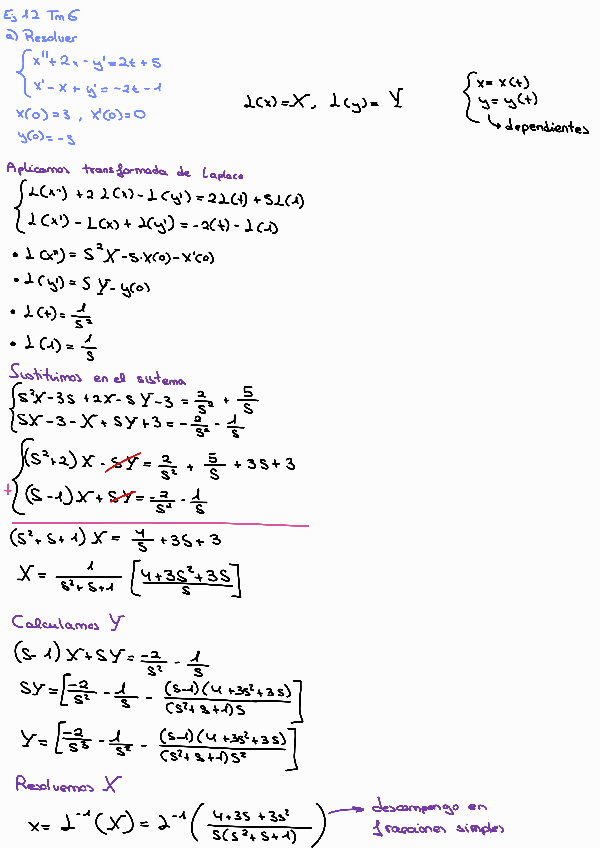 Ej 12 Tm 6
a) Resolver
x''+2x-y'=2t+5
x'-x+y'=-2t-1
x(0)=3, x'(0)=0
y(0)=-3
L(x)=X, L(y)=Y
x=x(t)
y=y(t)
↳ dependientes
Aplicamos transformada de Laplace
L(x'')+2L(x)-L(y')=2L(t)+5L(1)
L(x')-L(x)+L(y')=-2(t)-L(1)
• L(x'')=S²X-S·x(0)-x'(0)
• L(y')=SY-y(0)
• L(t)=1/S²
• L(1)=1/S
Sustituimos en el sistema
S²X-3S+2X-SY-3=2/S²+5/S
SX-3-X+SY+3=-2/S²-1/S
(S²+2)X-SY=2/S²+5/S+3S+3
+ (S-1)X+SY=-2/S²-1/S
(S²+S+1)X=4/S+3S+3
X=1/(S²+S+1) [(4+3S²+3S)/S]
Calculamos Y
(S-1)X+SY=-2/S²-1/S
SY=[-2/S²-1/S-(S-1)(4+3S²+3S)/((S²+S+1)S)]
Y=[-2/S³-1/S²-(S-1)(4+3S²+3S)/((S²+S+1)S²)]
Resolvemos X
x=L⁻¹(X)=L⁻¹((4+3S+3S²)/(S(S²+S+1))) → descompongo en
fracciones simples